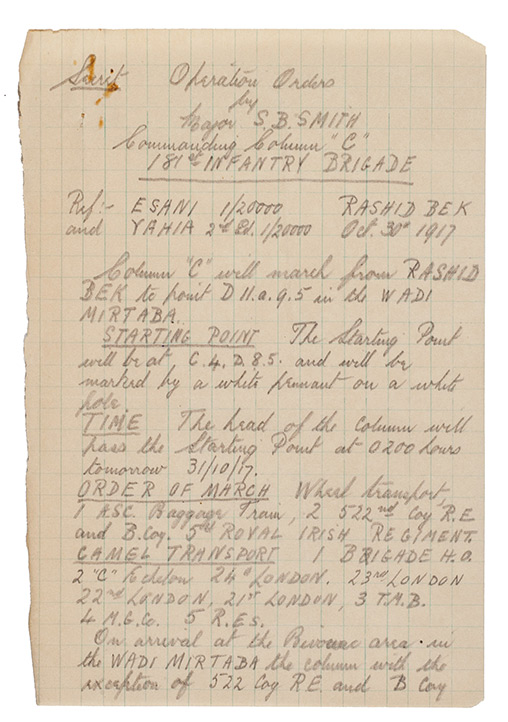 Secret Operation Orders
by
Major S.B. SMITH
Commanding Column "C"
181st INFANTRY BRIGADE
Ref:- ESANI 1/20000 RASHID BEK
and YAHIA 2nd Ed. 1/20000 Oct. 30th 1917
Column "C" will march from RASHID
BEK to point D 11.a.9.5 in the WADI
MIRTABA.
STARTING POINT The Starting Point
will be at C.4.D.8.5. and will be
marked by a white pennant on a white
pole.
TIME The head of the column will
pass the Starting Point at 0200 hours
tomorrow 31/10/17.
ORDER OF MARCH Wheel transport,
1 ASC. Baggage Train, 2 522nd Coy R.E
and B.Coy. 5th ROYAL IRISH REGIMENT.
CAMEL TRANSPORT 1 BRIGADE H.Q.
2 "C" Echelon 24th LONDON. 23rd LONDON
22nd LONDON, 21st LONDON, 3 T.M.B.
4 M.G.Co. 5 R.ES.
On arrival at the Bivouac area in
the WADI MIRTABA the column with the
exception of 522 Coy R.E. and B Coy